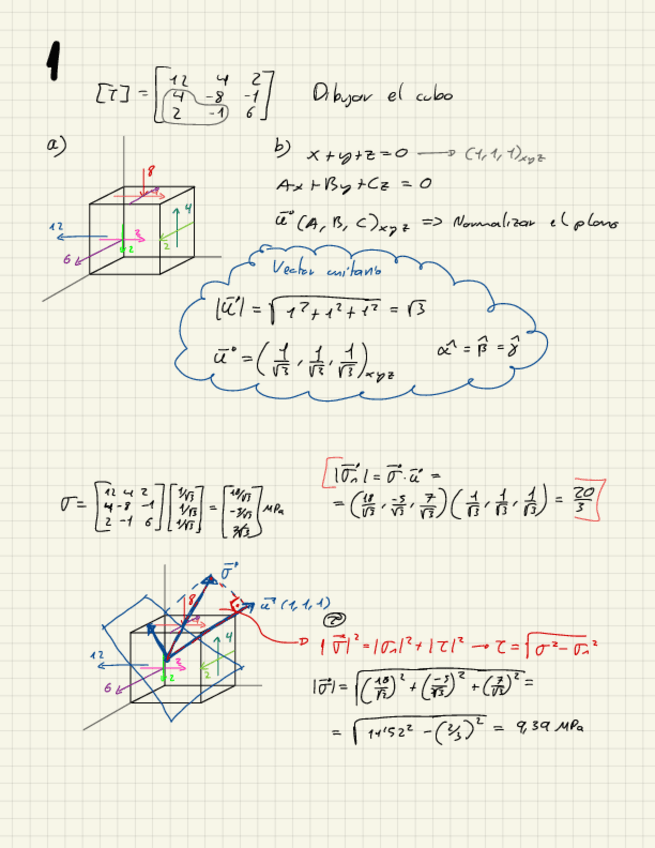 1
[T] = [12 4 2; 4 -8 -1; 2 -1 6] Dibujar el cubo
a)
8
4
12
2
2
2
6
b) x+y+z=0 → (1,1,1)xyz
Ax+By+Cz = 0
ū (A, B, C)xyz => Normalizar el plano
Vector unitario
|ū| = √(1²+1²+1²) = √3
ū = (1/√3, 1/√3, 1/√3)xyz α̂ = β̂ = γ̂
σ = [12 4 2; 4 -8 -1; 2 -1 6] [1/√3; 1/√3; 1/√3] = [18/√3; -5/√3; 7/√3] MPa
|σ̄n| = σ̄ · ū =
= (18/√3, -5/√3, 7/√3) (1/√3, 1/√3, 1/√3) = 20/3
σ̄
ū (1,1,1)
8
4
12
2
2
2
6
τ
|σ̄|² = |σn|² + |τ|² → τ = √(σ² - σn²)
|σ̄| = √((18/√3)² + (-5/√3)² + (7/√3)²) =
= √(11'52² - (2/3)²) = 9,39 MPa